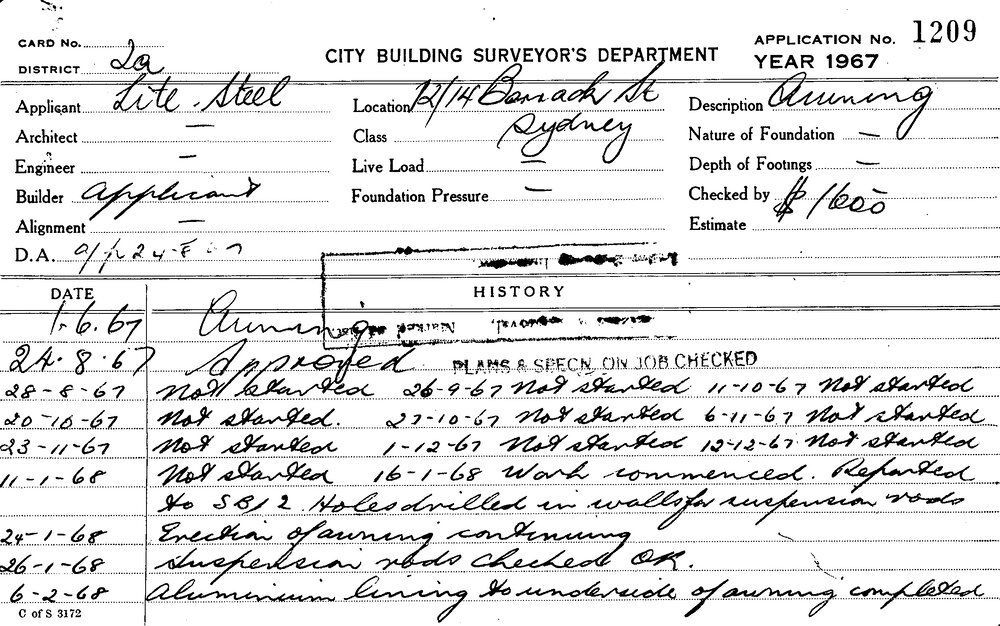 CARD No.
DISTRICT 2a
CITY BUILDING SURVEYOR'S DEPARTMENT
APPLICATION No. 1209
YEAR 1967
Applicant Lite. Steel
Location 12/14 Barrack St
Description Awning
Architect —
Class Sydney
Nature of Foundation —
Engineer —
Live Load —
Depth of Footings —
Builder applicant
Foundation Pressure —
Checked by
Alignment —
Estimate $1600
D.A. 24-8
DATE
HISTORY
1.6.67 Awning
24.8.67 Approved PLANS & SPECN. ON JOB CHECKED
28-8-67 Not started 26-9-67 Not started 11-10-67 Not started
20-10-67 Not started. 27-10-67 Not started 6-11-67 Not started
23-11-67 Not started 1-12-67 Not started 12-12-67 Not started
11-1-68 Not started 16-1-68 Work commenced. Reported
to SB12. Holes drilled in walls for suspension rods
24-1-68 Erection of awning continuing
26-1-68 Suspension rods checked OK.
6-2-68 Aluminium lining to underside of awning completed
C of S 3172